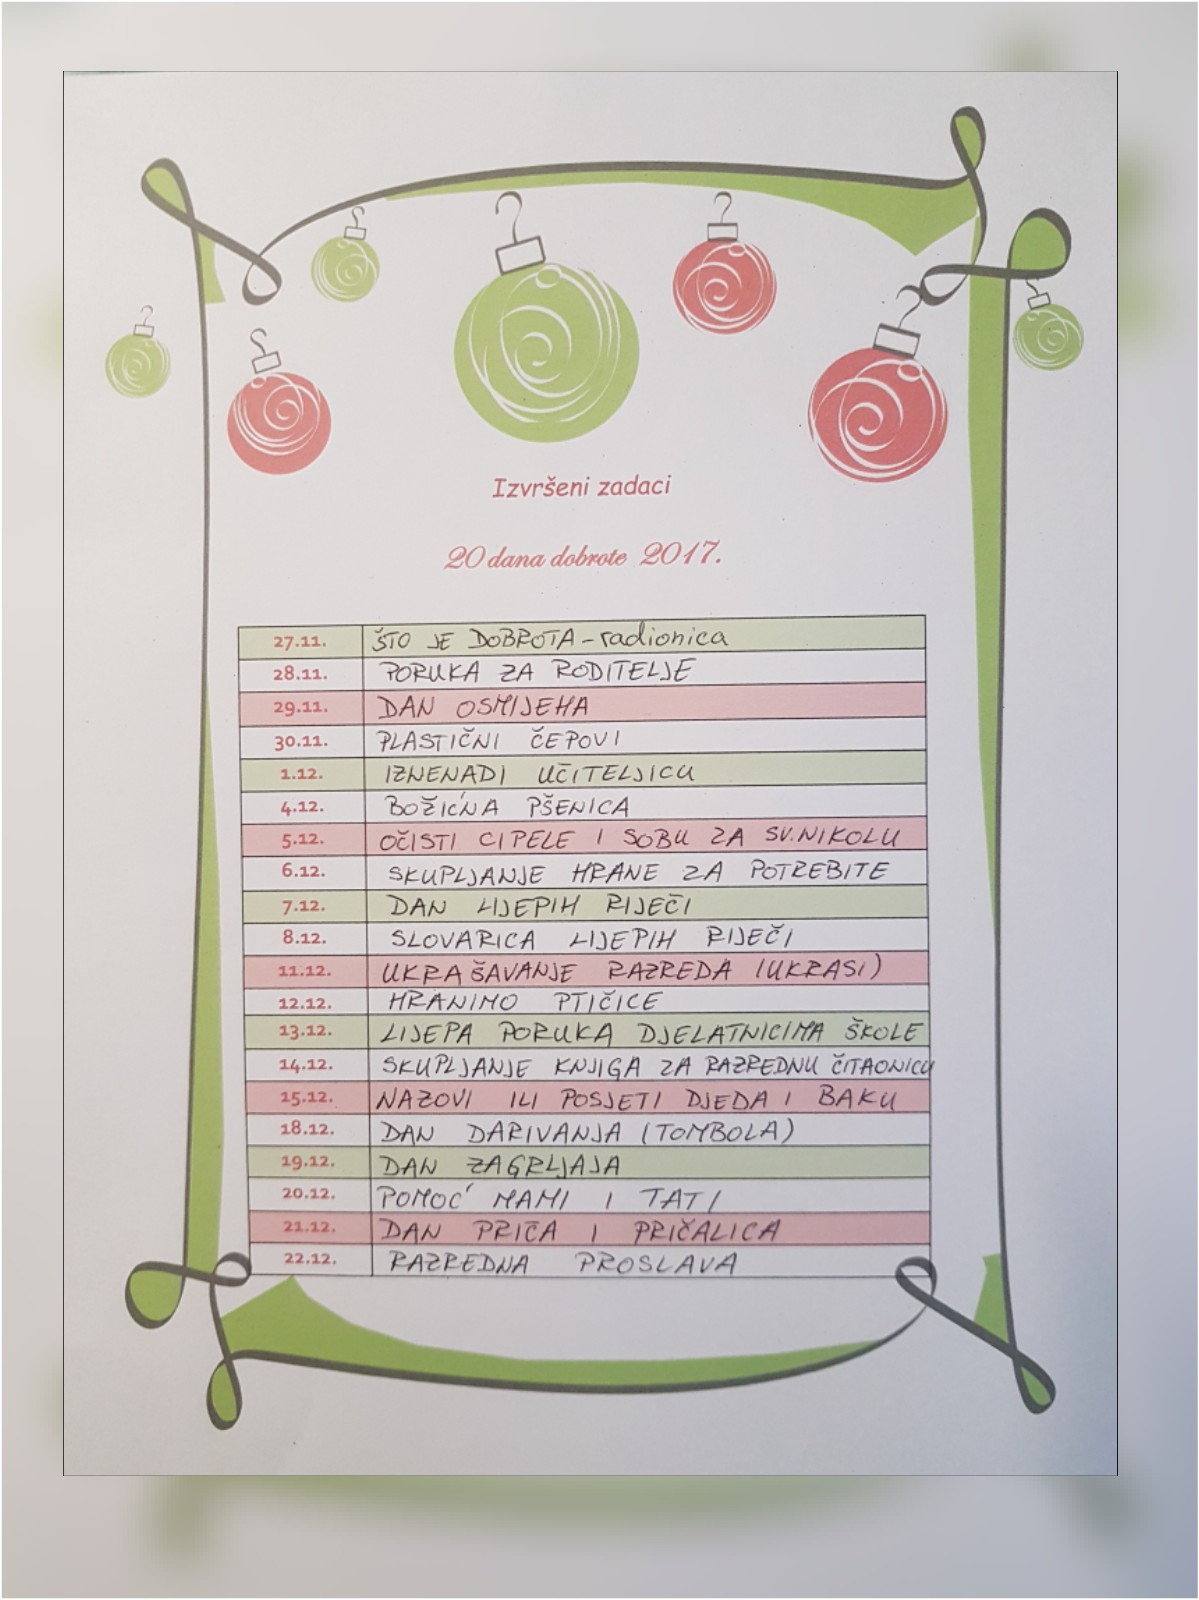 Izvršeni zadaci
20 dana dobrote 2017.
27.11. ŠTO JE DOBROTA - radionica
28.11. PORUKA ZA RODITELJE
29.11. DAN OSMIJEHA
30.11. PLASTIČNI ČEPOVI
1.12. IZNENADI UČITELJICU
4.12. BOŽIĆNA PŠENICA
5.12. OČISTI CIPELE I SOBU ZA SV.NIKOLU
6.12. SKUPLJANJE HRANE ZA POTREBITE
7.12. DAN LIJEPIH RIJEČI
8.12. SLOVARICA LIJEPIH RIJEČI
11.12. UKRAŠAVANJE RAZREDA (UKRASI)
12.12. HRANIMO PTIČICE
13.12. LIJEPA PORUKA DJELATNICIMA ŠKOLE
14.12. SKUPLJANJE KNJIGA ZA RAZREDNU ČITAONICU
15.12. NAZOVI ILI POSJETI DJEDA I BAKU
18.12. DAN DARIVANJA (TOMBOLA)
19.12. DAN ZAGRLJAJA
20.12. POMOĆ MAMI I TATI
21.12. DAN PRIČA I PRIČALICA
22.12. RAZREDNA PROSLAVA